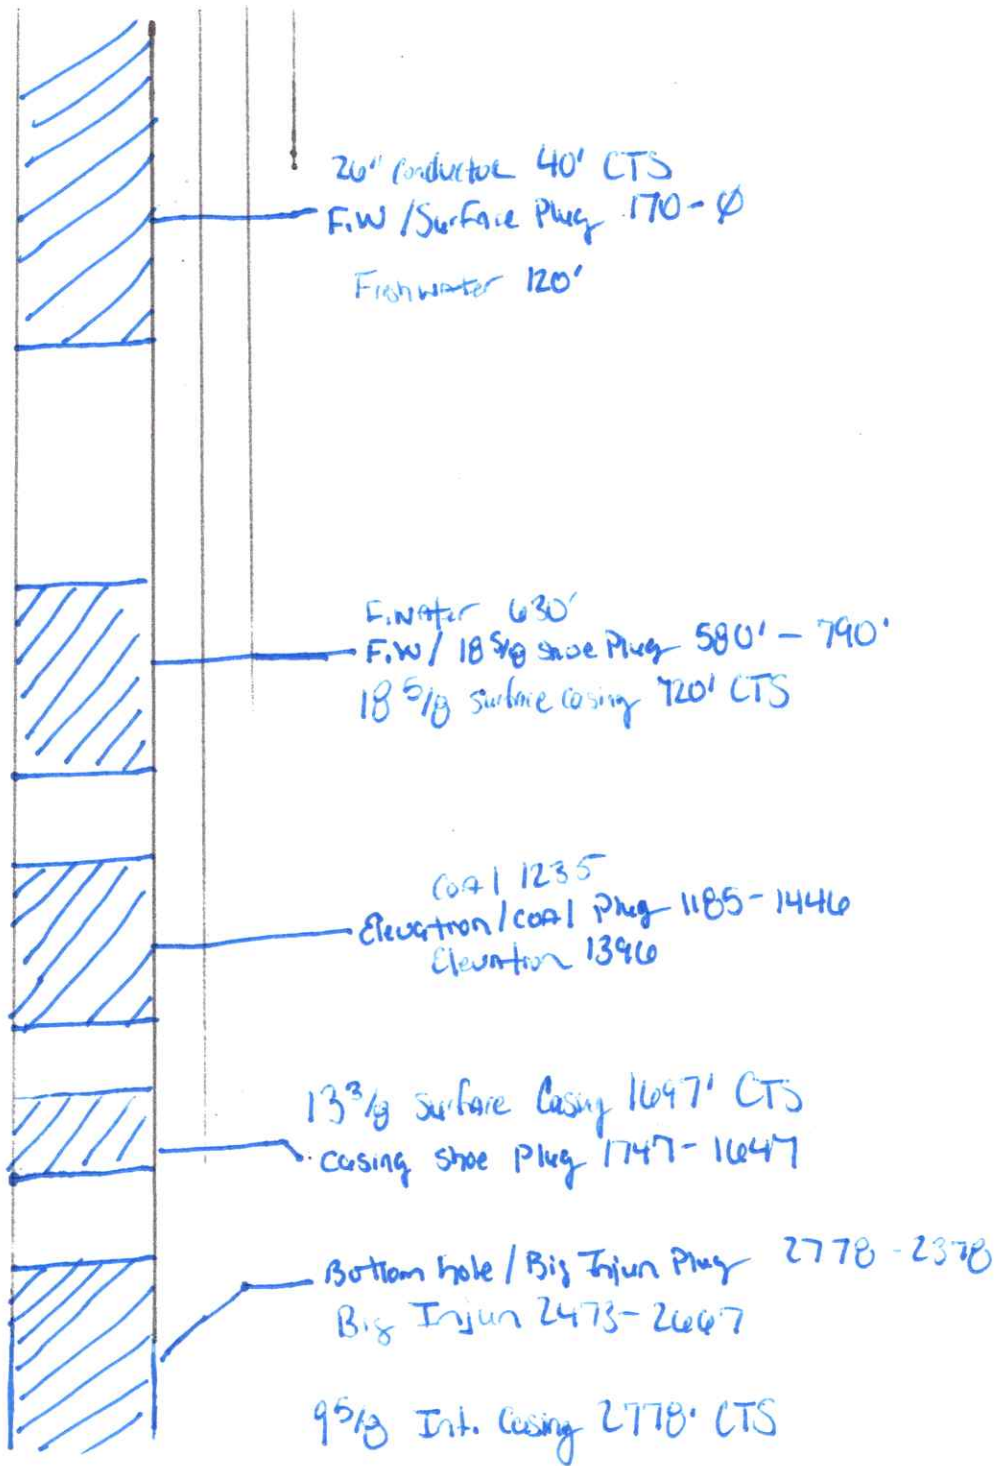 26" Conductor 40' CTS
F.W / Surface Plug 170 - Ø
Freshwater 120'
F.water 630'
F.W / 18 5/8 shoe Plug 580' - 790'
18 5/8 surface casing 720' CTS
Coal 1235
Elevation / Coal Plug 1185 - 1446
Elevation 1396
13 3/8 Surface Casing 1697' CTS
casing shoe Plug 1747 - 1647
Bottom hole / Big Injun Plug 2778 - 2378
Big Injun 2473 - 2667
9 5/8 Int. Casing 2778' CTS